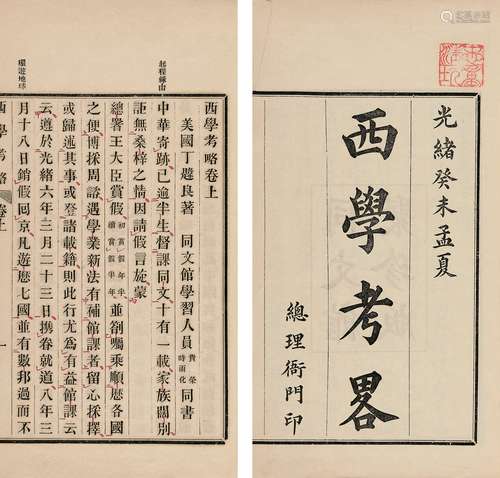 光緒癸未孟夏
西學考畧
總理衙門印
西學考略卷上
美國丁韙良著 同文館學習人員 貴榮 時雨化 同書
起程緣由
中華寄跡已逾半生督課同文十有一載家族闊別
詎無桑梓之情因請假言旋蒙
總署王大臣賞假 初賞假年半 續賞假半年 並劄囑乘順厯各國
之便博採周諮遇學業新法有補館課者留心採擇
或歸述其事或登諸載籍則此行尤爲有益館課云
云遵於光緒六年三月二十三日携眷就道八年三
環遊地球
月十八日銷假囘京凡遊厯七國並有數邦過而不
西學考略 卷上 一